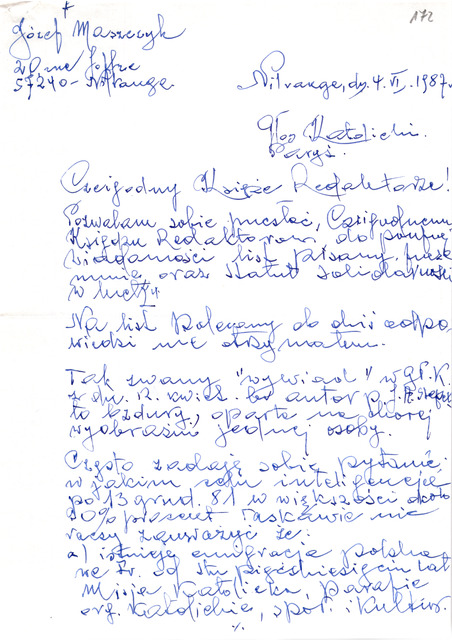 172
Józef Maszczyk
20 rue Joffre
57240 - Nilvange
Nilvange, dn. 4. VI. 1987r.
Głos Katolicki.
Paryż.
Czcigodny Księże Redaktorze!
Pozwalam sobie przesłać, Czcigodnemu
Księdzu Redaktorowi do
wiadomości list pisany przeze
mnie oraz statut Solidarności
w
Na list polecany do dziś odpo-
wiedzi nie otrzymałem.
Tak zwany "wywiad" w gł. K.
z dn. 12. kwiet. br autor p.
to bzdury, oparte na chorej
wyobraźni jednej osoby.
Często zadaję sobie pytanie,
w jakim celu inteligencja
po 13 grud. 81 w większości około
90% procent łaskawie nie
raczy zauważyć że:
a) istnieje emigracja polska
we Fr. od stu pięćdziesięciu lat
Misja Katolicka, parafie
org. Katolickie, społ. i kultur.
./.